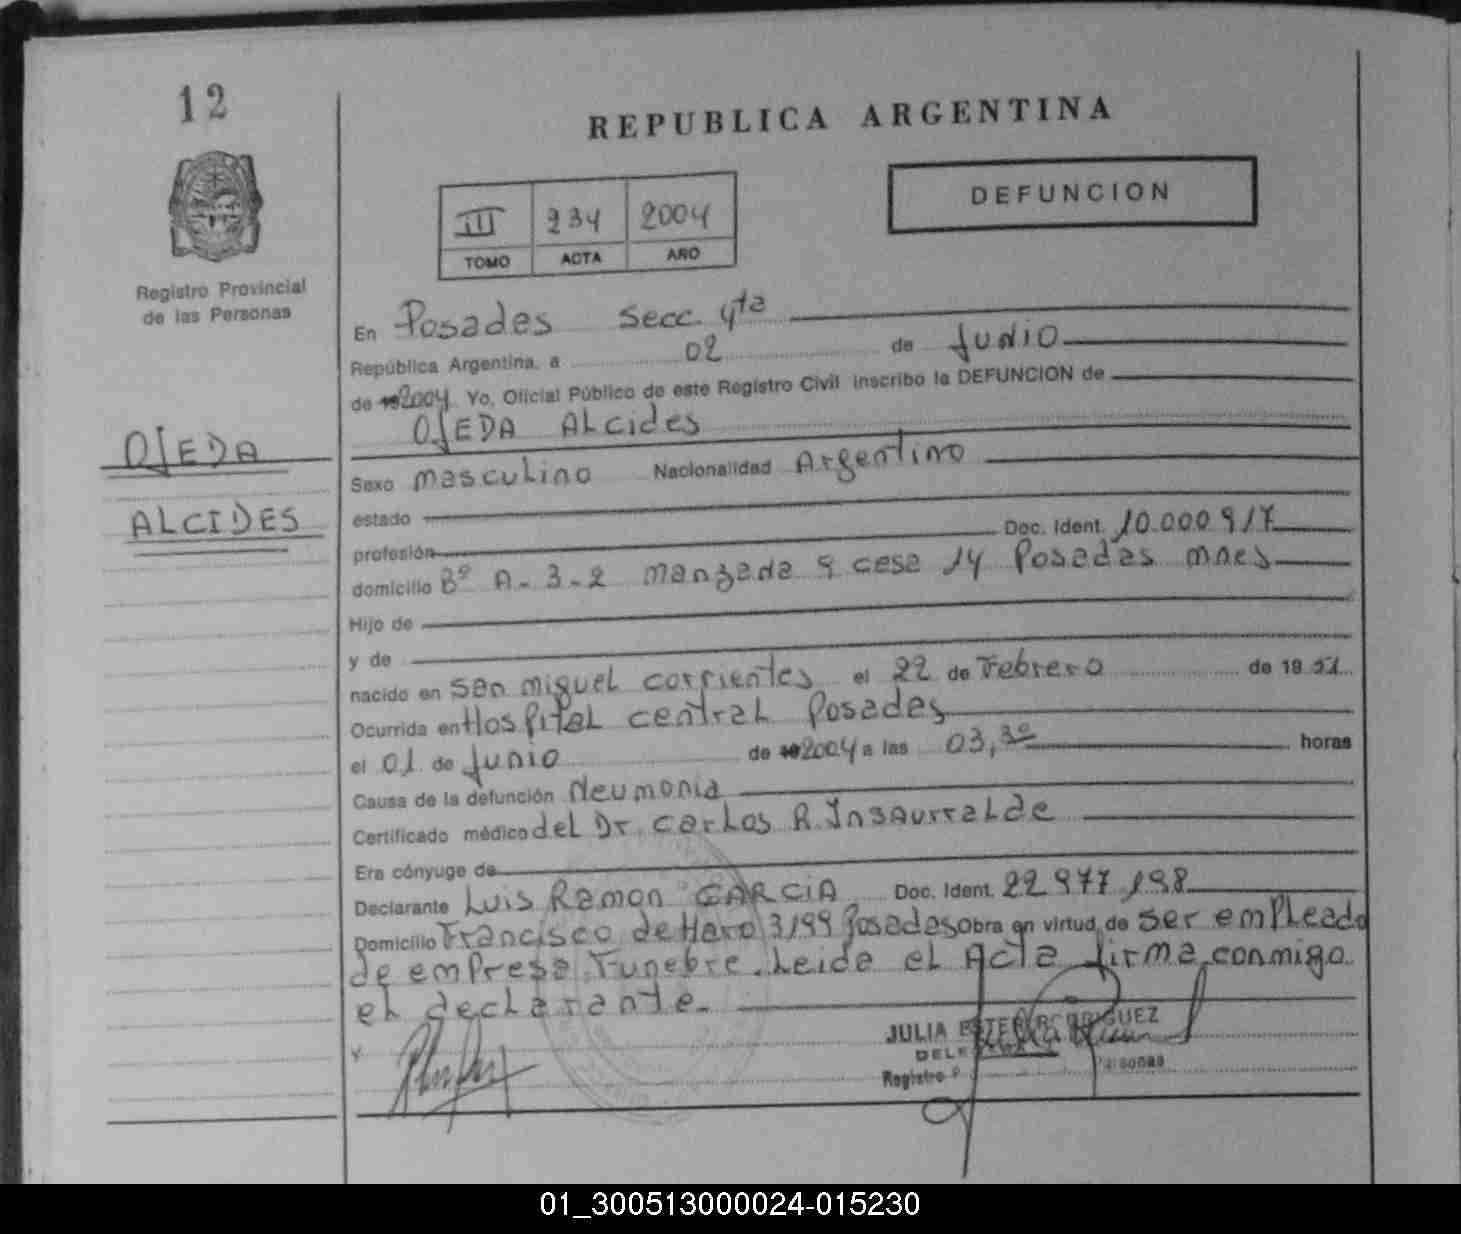 12
REPUBLICA ARGENTINA
DEFUNCION
III 234 2004
TOMO ACTA AÑO
Registro Provincial
de las Personas
En Posadas Secc. 4ta
República Argentina, a 02 de Junio
de 192004 Yo, Oficial Público de este Registro Civil inscribo la DEFUNCION de
OJEDA ALcides
OJEDA
ALCIDES
Sexo masculino Nacionalidad Argentino
estado
profesión Doc. Ident. 10.000917
domicilio Bº A-3-2 manzana 9 casa 14 Posadas mnes
Hijo de
y de
nacido en San miguel corrientes el 22 de Febrero de 19 51
Ocurrida en Hospital central Posadas
el 01 de Junio de 192004 a las 03,30 horas
Causa de la defunción Neumonia
Certificado médico del Dr. carlos R. Insaurralde
Era cónyuge de
Declarante Luis Ramon GARCIA Doc. Ident. 22.977.198
Domicilio Francisco de Haro 3199 Posadas obra en virtud de ser empleado
de empresa Funebre. Leida el Acta firma conmigo
el declarante.
JULIA ESTER RODRIGUEZ
Registro Personas
01_300513000024-015230